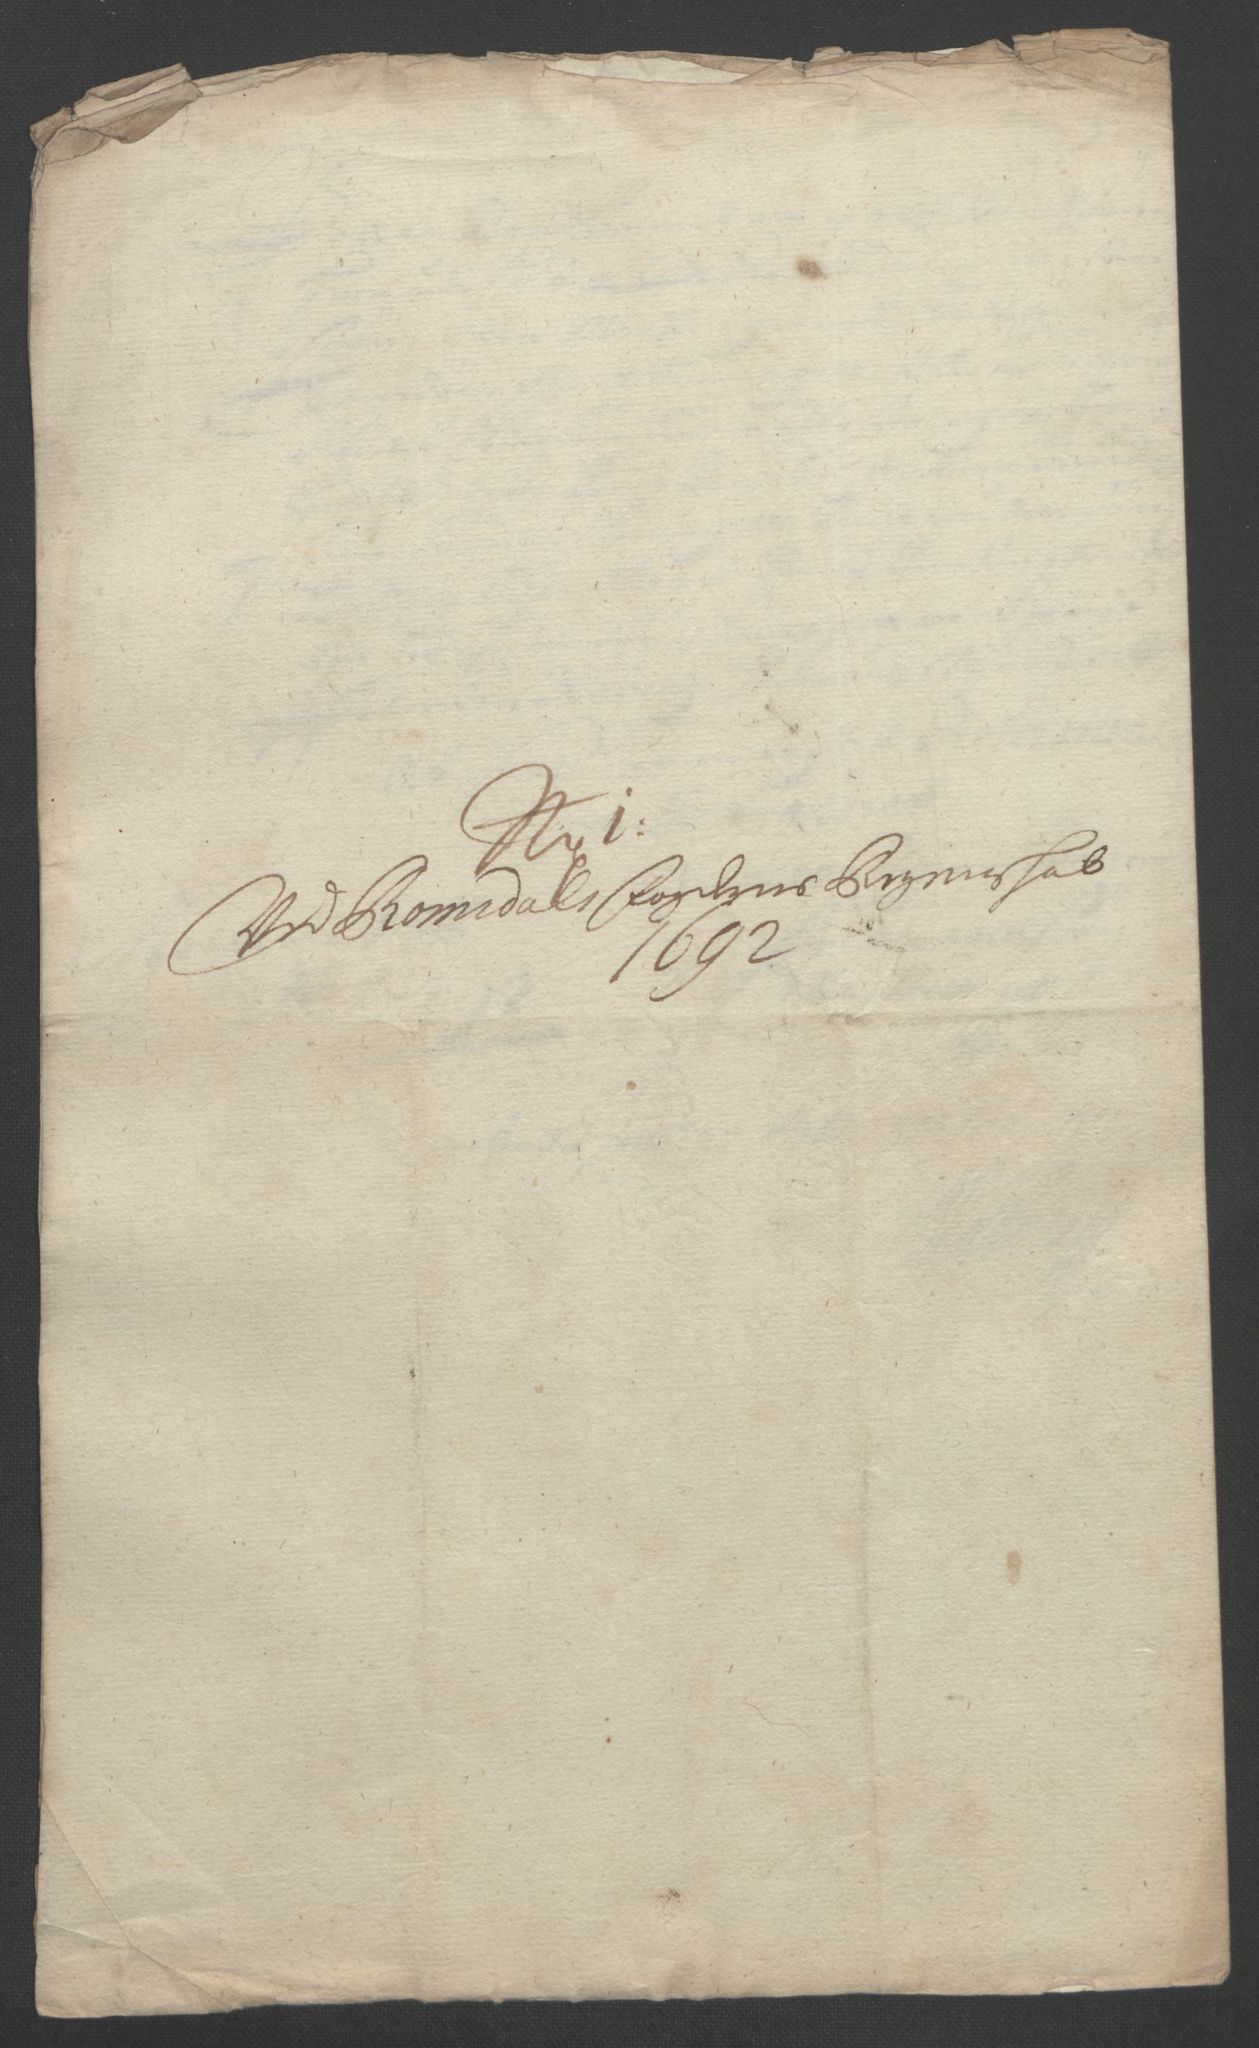 No 1:
Ved Romsdals fogderies Regenschab
1692